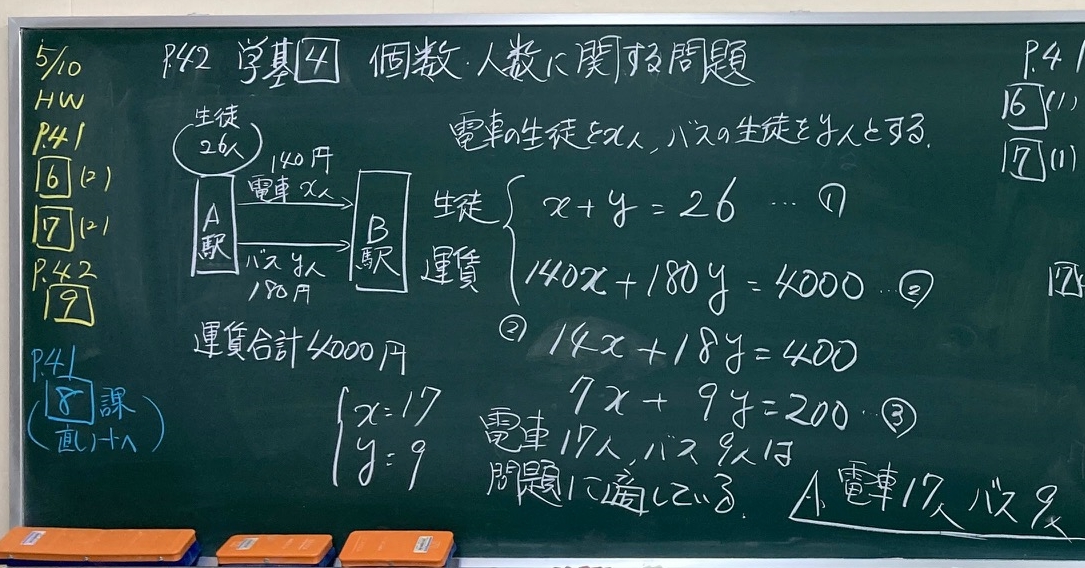 5/10
HW
P.41
6 (2)
7 (2)
P.42
9
P.41
8 課
(直し+ヘ)
P.42 学基4 個数・人数に関する問題
生徒
26人
140円
電車 x人
A駅
B駅
バス y人
180円
運賃合計4000円
電車の生徒をx人, バスの生徒をy人とする.
生徒 x+y=26 … ①
運賃 140x+180y=4000 … ②
② 14x+18y=400
7x+9y=200 … ③
x=17
y=9
電車17人, バス9人は
問題に適している.
A. 電車17人 バス9人
P.41
6 (1)
7 (1)
7